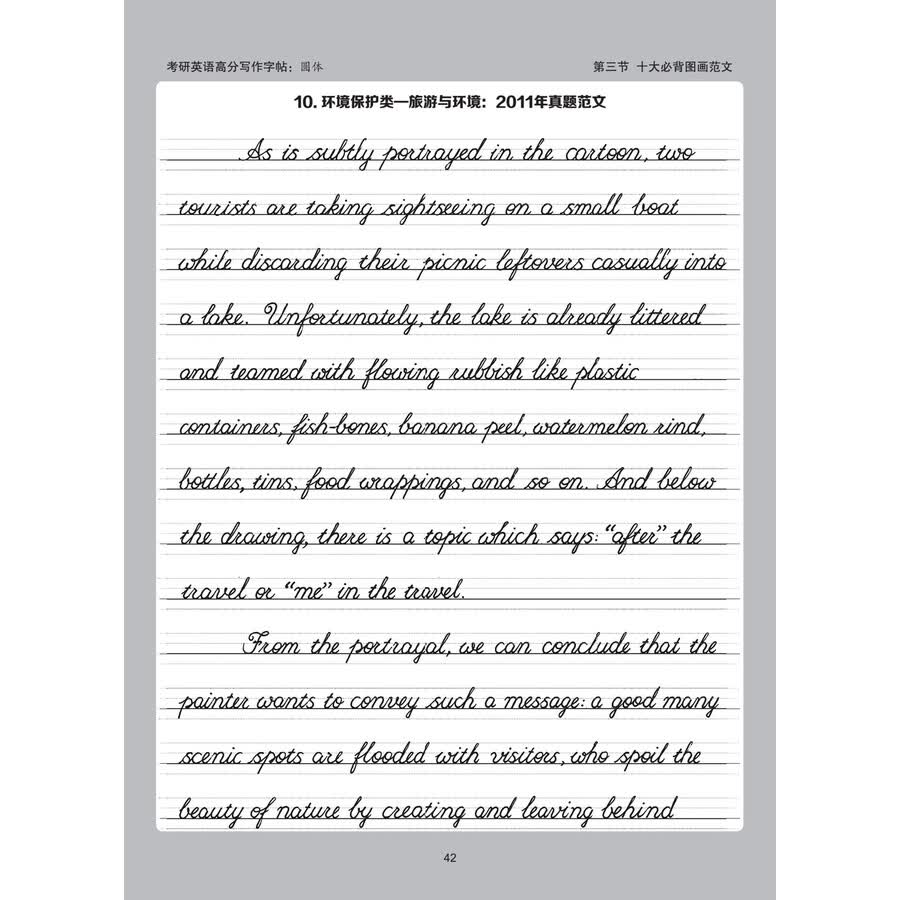 考研英语高分写作字帖：圆体
第三节 十大必背图画范文
10. 环境保护类—旅游与环境：2011年真题范文
As is subtly portrayed in the cartoon, two
tourists are taking sightseeing on a small boat
while discarding their picnic leftovers casually into
a lake. Unfortunately, the lake is already littered
and teamed with flowing rubbish like plastic
containers, fish-bones, banana peel, watermelon rind,
bottles, tins, food wrappings, and so on. And below
the drawing, there is a topic which says: “after” the
travel or “me” in the travel.
From the portrayal, we can conclude that the
painter wants to convey such a message: a good many
scenic spots are flooded with visitors, who spoil the
beauty of nature by creating and leaving behind
42